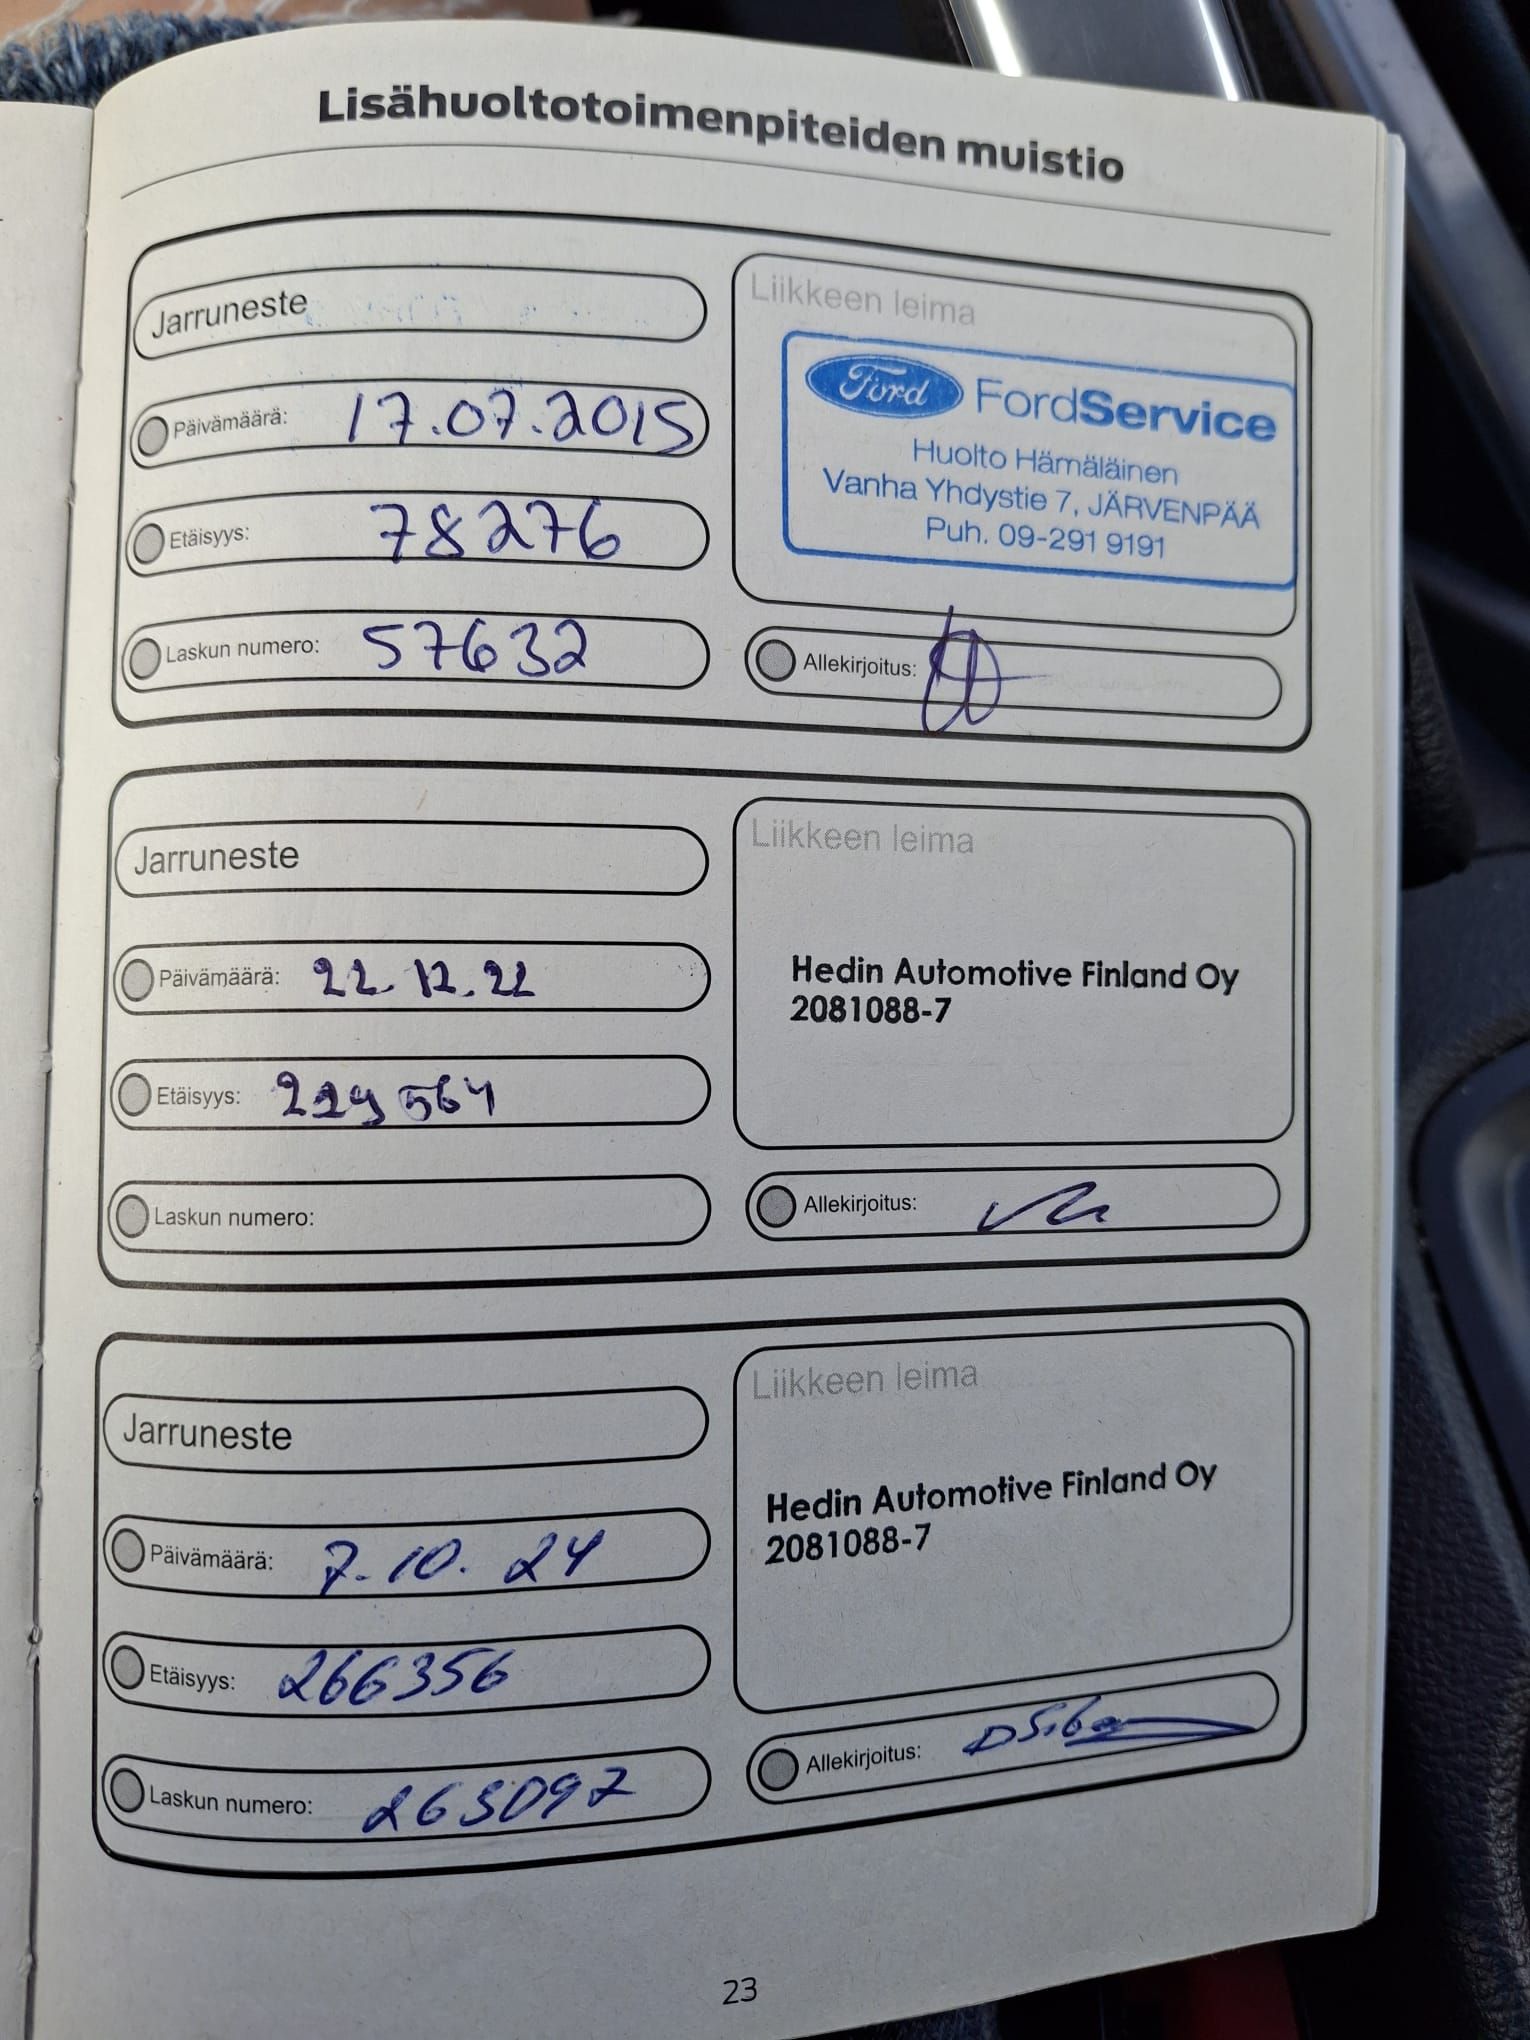 Lisähuoltotoimenpiteiden muistio
Jarruneste
Päivämäärä: 17.07.2015
Etäisyys: 78276
Laskun numero: 57632
Liikkeen leima
Ford FordService
Huolto Hämäläinen
Vanha Yhdystie 7, JÄRVENPÄÄ
Puh. 09-291 9191
Allekirjoitus:
Jarruneste
Päivämäärä: 22.12.22
Etäisyys: 229564
Laskun numero:
Liikkeen leima
Hedin Automotive Finland Oy
2081088-7
Allekirjoitus:
Jarruneste
Päivämäärä: 7.10.24
Etäisyys: 266356
Laskun numero: 263097
Liikkeen leima
Hedin Automotive Finland Oy
2081088-7
Allekirjoitus:
23